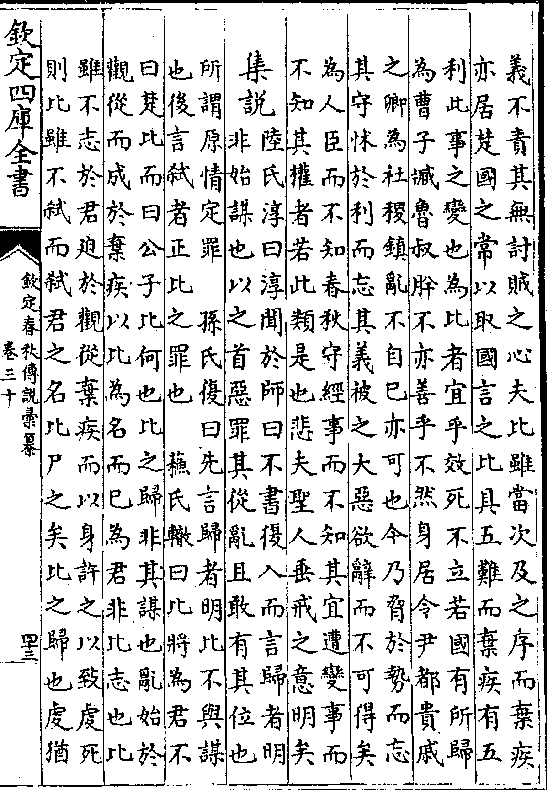 義不責其無討賊之心夫比雖當次及之序而棄疾
亦居楚國之常以取國言之比具五難而棄疾有五
利此事之變也為比者宜乎效死不立若國有所歸
為曹子臧魯叔肸不亦善乎不然身居令尹都貴戚
之卿為社稷鎮亂不自已亦可也今乃脅於勢而忘
其守怵於利而忘其義被之大惡欲辭而不可得矣
為人臣而不知春秋守經事而不知其宜遭變事而
不知其權者若此類是也悲夫聖人垂戒之意明矣
集說陸氏淳曰淳聞於師曰不書復入而言歸者明
非始謀也以之首惡罪其從亂且敢有其位也
所謂原情定罪 孫氏復曰先言歸者明比不與謀
也後言弑者正比之罪也 蘇氏轍曰比將為君不
曰楚比而曰公子比何也比之歸非其謀也亂始於
觀從而成於棄疾以比為名而已為君非比志也比
雖不志於君迫於觀從棄疾而以身許之以致虔死
則比雖不弑而弑君之名比尸之矣比之歸也虔猶
欽定四庫全書
欽定春秋傳說彙纂
卷三十
四十三